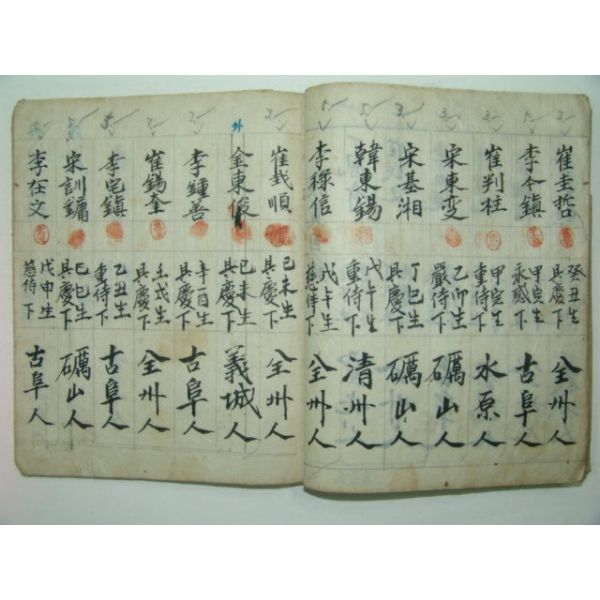 崔圭哲 癸丑生 具慶下 全州人
李今鎮 甲寅生 永感下 古阜人
崔判柱 甲寅生 重侍下 水原人
宋東変 乙卯生 嚴侍下 礪山人
宋基湘 丁巳生 具慶下 礪山人
韓東錫 戊午生 重侍下 清州人
李祿信 戊午生 慈侍下 全州人
崔順 己未生 具慶下 全州人
外 金東俊 己未生 具慶下 義城人
李鍾善 辛酉生 具慶下 古阜人
崔錫奎 壬戌生 具慶下 全州人
李宅鎮 乙丑生 重侍下 古阜人
宋訓鏞 己巳生 具慶下 礪山人
李在文 戊申生 慈侍下 古阜人